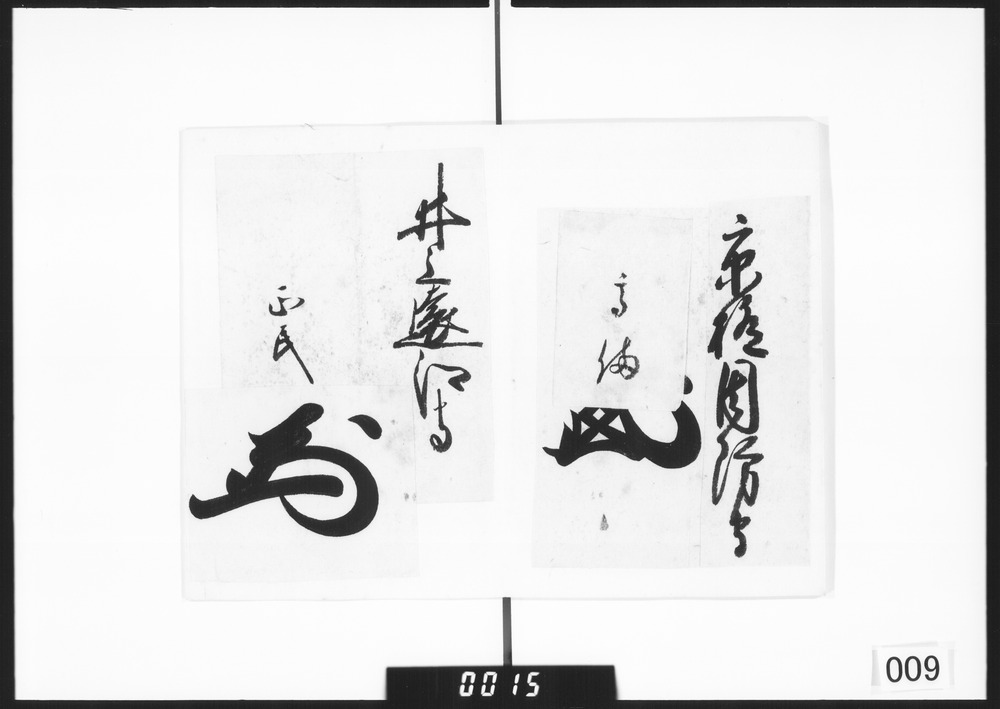 京極周防守
高備
井上遠江守
正民
0015
009